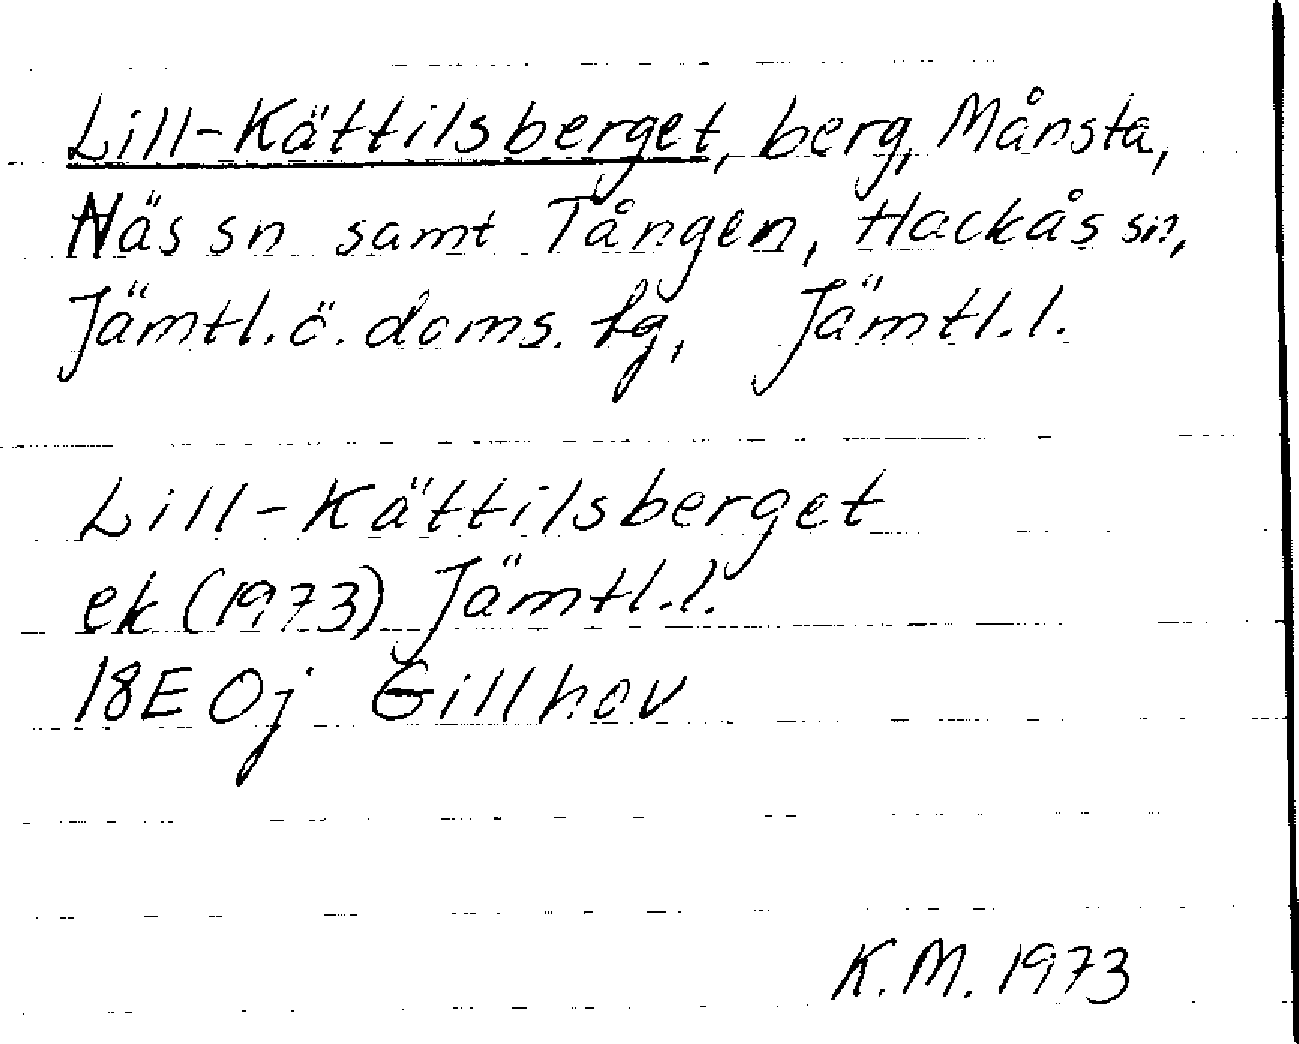 Lill-Kättilsberget, berg, Månsta,
Näs sn samt Tången, Hackås sn,
Jämtl. ö. doms. lg, Jämtl. l.
Lill-Kättilsberget
ek (1973) Jämtl. l.
18E 0j Gillhov
K.M. 1973